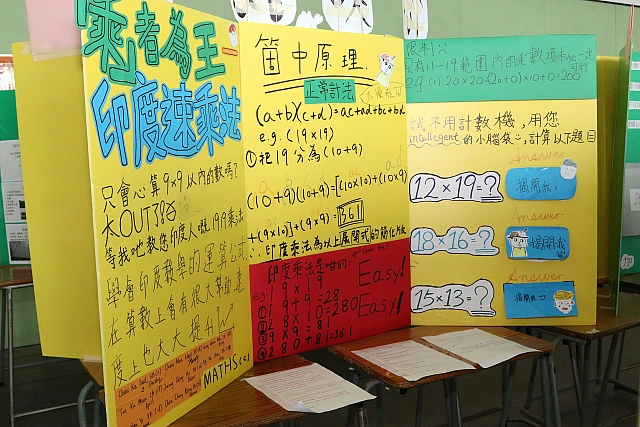 乘者為王
印度速乘法
只會心算9×9以內的數嗎?
大OUT了!!
等我哋教您印度人嘅19×19乘法
學會印度數學的運算公式
在算數上會有很大幫助,速
度上也大大提升!
MATHS(C)
箇中原理
正常計法
(a+b)(c+d)=ac+ad+bc+bd
e.g. (19×19)
①把19分為(10+9)
(10+9)(10+9)=[(10×10)+(10×9)
+(9×10)]+(9×9)=361
∴印度乘法為以上展開式的簡化版
印度乘法是咁的:
e.g. 19×19
①19+9=28
②28×10=280
③9×9=81
④280+81=361
Easy!
Easy!
限制:
只有11-19範圍內的乘數項未必一定可行
試不用計數機,用您
intellegent的小腦袋,計算以下題目
Answer
12×19=?
揭開我:
Answer
18×16=?
揭開我:
Answer
15×13=?
揭開我